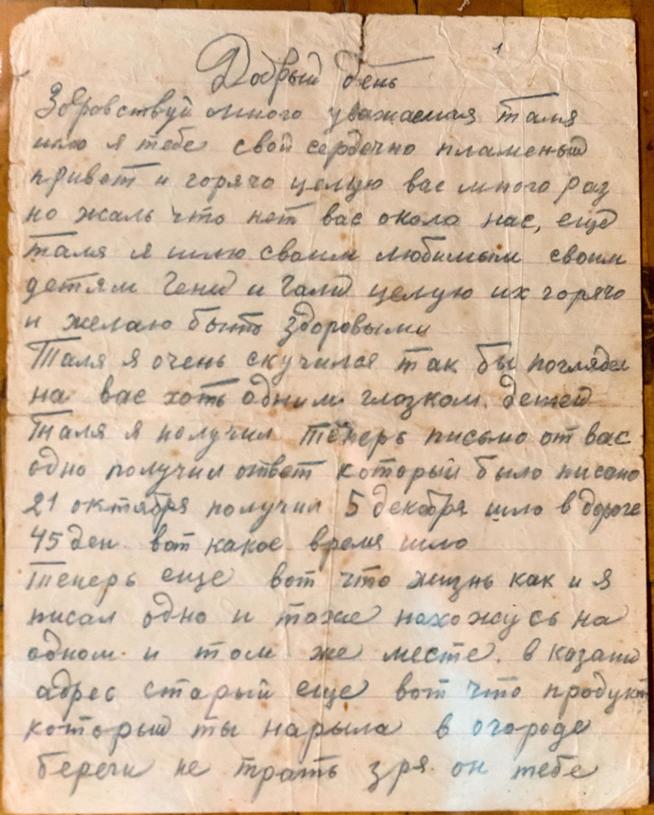 1
Добрый день
Здровствуй много уважаемая Таля
шлю я тебе свой сердечно пламеный
привет и горячо целую вас много раз
но жаль что нет вас около нас, ещё
Таля я шлю своим любимым своим
детям Гени и Гали целую их горячо
и желаю быть здоровыми
Таля я очень скучился так бы поглядел
на вас хоть одним глазком. детей
Таля я получил теперь письмо от вас
одно получил ответ который было писано
21 октября получил 5 декабря шло в дороге
45 ден. вот какое время шло
Теперь еще вот что жизнь как и я
писал одно и тоже нахожусь на
одном. и том же месте. в казани
адрес старый еще вот что продукт
который ты нарыла в огороде
беречи не трать зря. он тебе